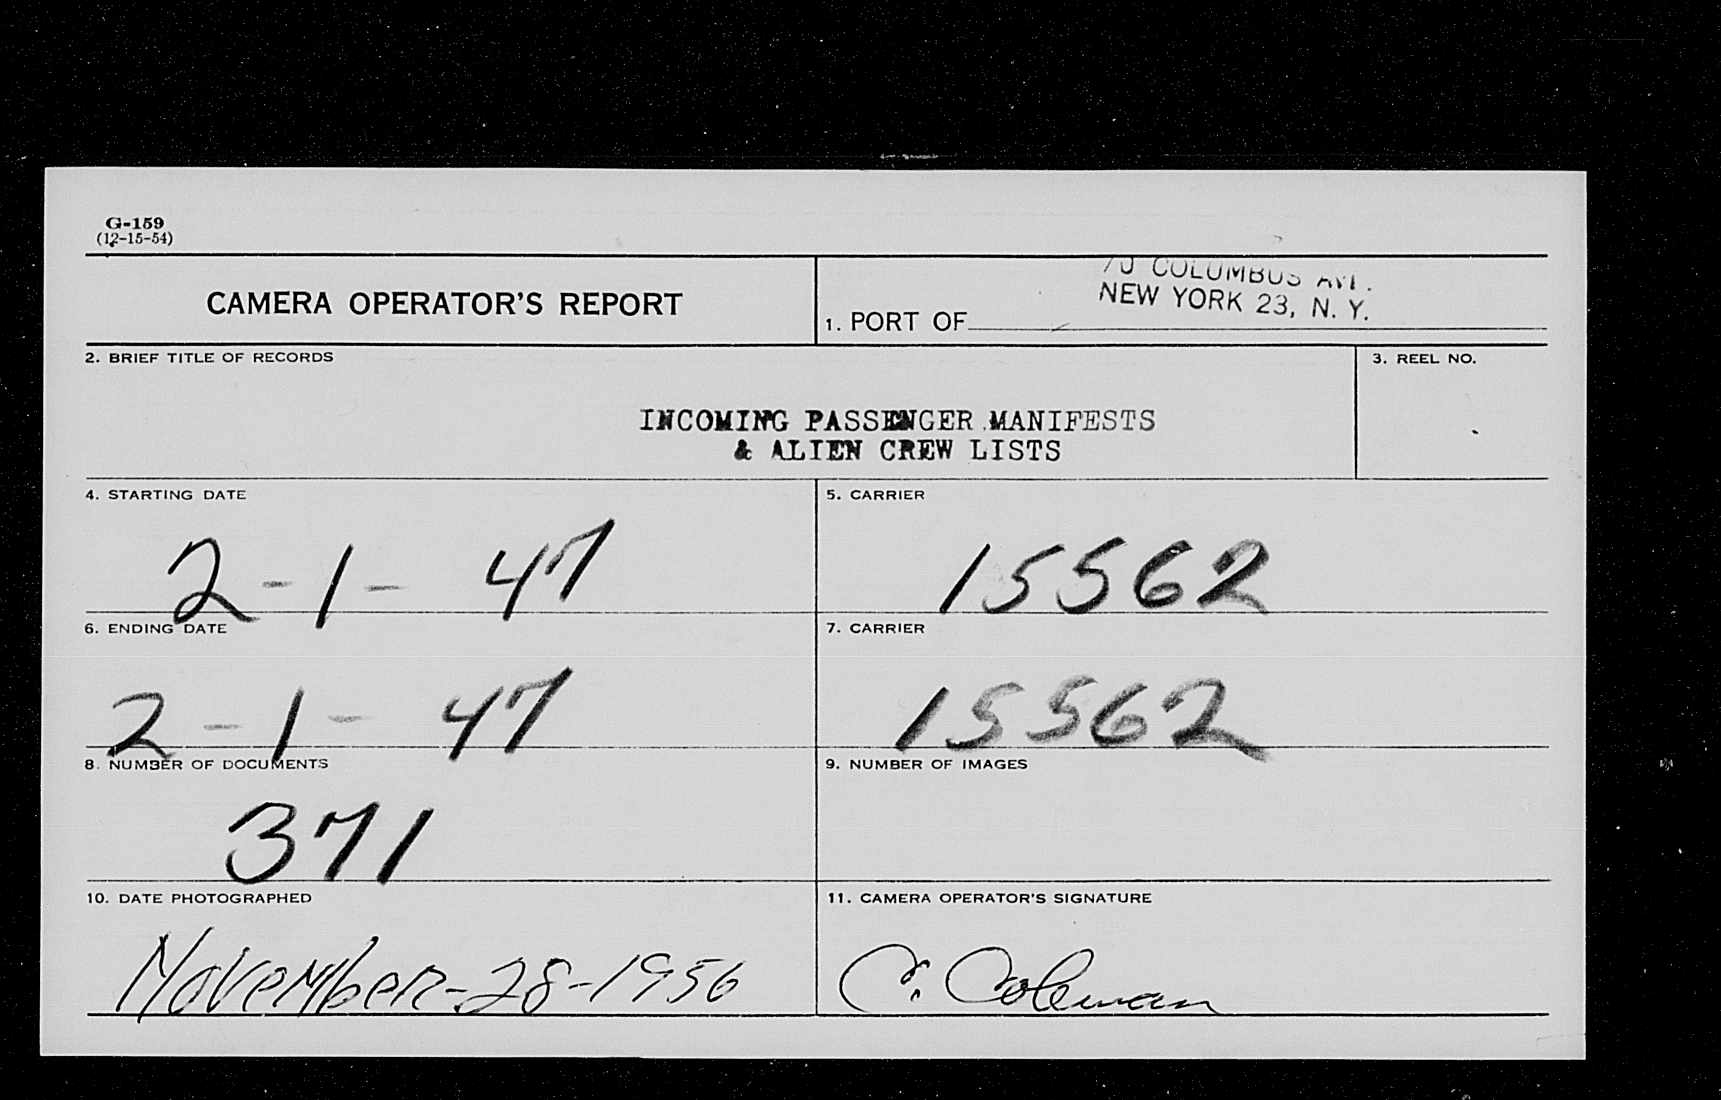 G-159
(12-15-54)
CAMERA OPERATOR'S REPORT
70 COLUMBUS AVE.
NEW YORK 23, N. Y.
1. PORT OF
2. BRIEF TITLE OF RECORDS
3. REEL NO.
INCOMING PASSENGER MANIFESTS
& ALIEN CREW LISTS
4. STARTING DATE
2-1-47
5. CARRIER
15562
6. ENDING DATE
2-1-47
7. CARRIER
15562
8. NUMBER OF DOCUMENTS
371
9. NUMBER OF IMAGES
10. DATE PHOTOGRAPHED
November-28-1956
11. CAMERA OPERATOR'S SIGNATURE
C. Coleman